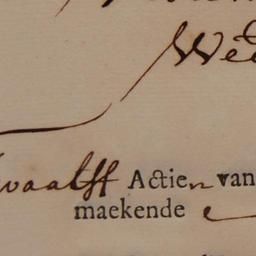 We
twaalff Actien van
maekende